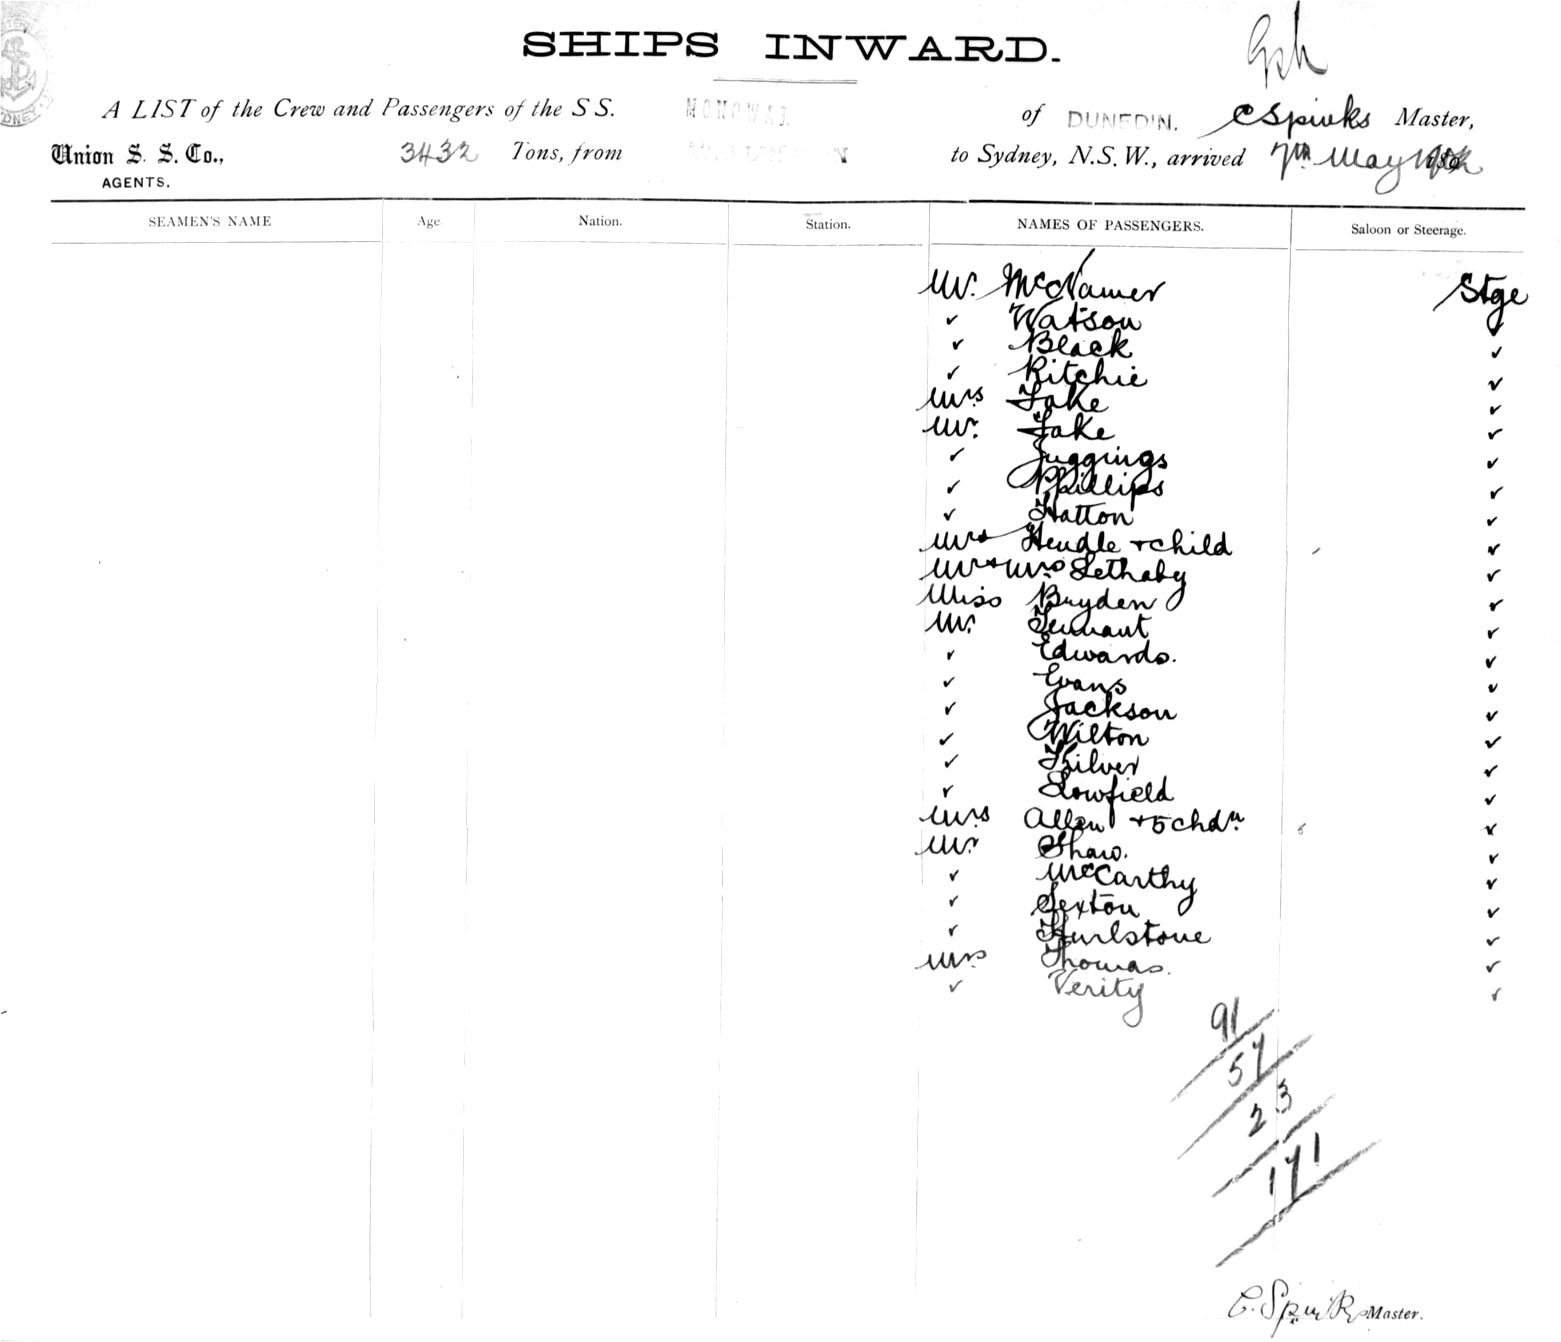 SHIPS INWARD.
A LIST of the Crew and Passengers of the S S. MONOWAI. of DUNEDIN. C Spinks Master,
Union S. S. Co., 3432 Tons, from WELLINGTON to Sydney, N.S.W., arrived 7th May
AGENTS.
SEAMEN'S NAME Age Nation. Station. NAMES OF PASSENGERS. Saloon or Steerage.
Mr. McNamer Stge
✓ Watson ✓
✓ Black ✓
✓ Ritchie ✓
Mrs Fake ✓
Mr. Fake ✓
✓ Juggings ✓
✓ Phillips ✓
✓ Hatton ✓
Mrs Hendle + child ✓
Mr + Mrs Lethaby ✓
Miss Bryden ✓
Mr. Tennant ✓
✓ Edwards. ✓
✓ Evans ✓
✓ Jackson ✓
✓ Wilton ✓
✓ Kilver ✓
✓ Lowfield ✓
Mrs Allen + 5 chdn ✓
Mr Shaw. ✓
✓ McCarthy ✓
✓ Sexton ✓
✓ Hurlstone ✓
Mrs Thomas. ✓
✓ Verity ✓
91
57
23
171
C. Spinks Master.